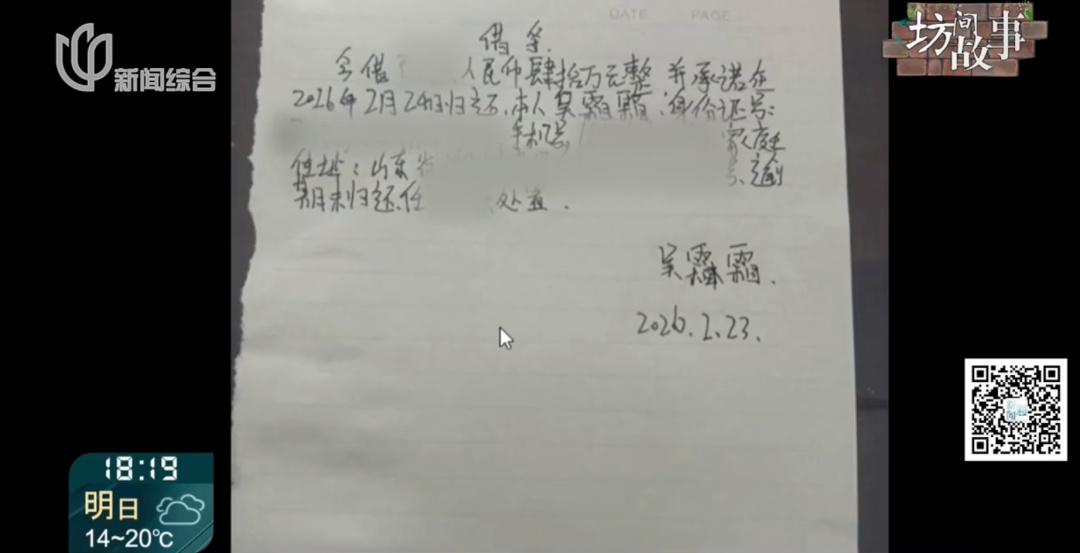 DATE PAGE
坊间故事
新闻综合
借条.
今借 人民币肆拾万元整 并承诺在
2026年2月24日归还.本人吴霜霜,身份证号:
手机号, 家庭
住址:山东省 号、逾
期未归还任 处置.
吴霜霜.
2026.2.23.
18:19
明日
14~20℃